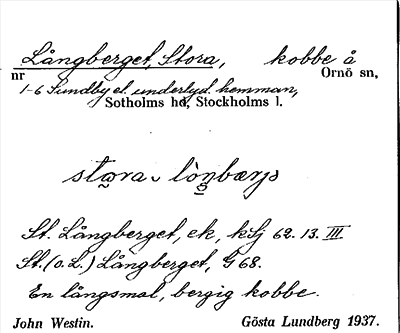 Långberget, Stora, kobbe å
nr Ornö sn,
1-6 Sundby el. underlyd. hemman,
Sotholms hd, Stockholms l.
stɷra lòŋbærjə
St. Långberget, ek, 62. 13. III
St. (o. L.) Långberget, G 68.
En långsmal, bergig kobbe.
John Westin. Gösta Lundberg 1937.